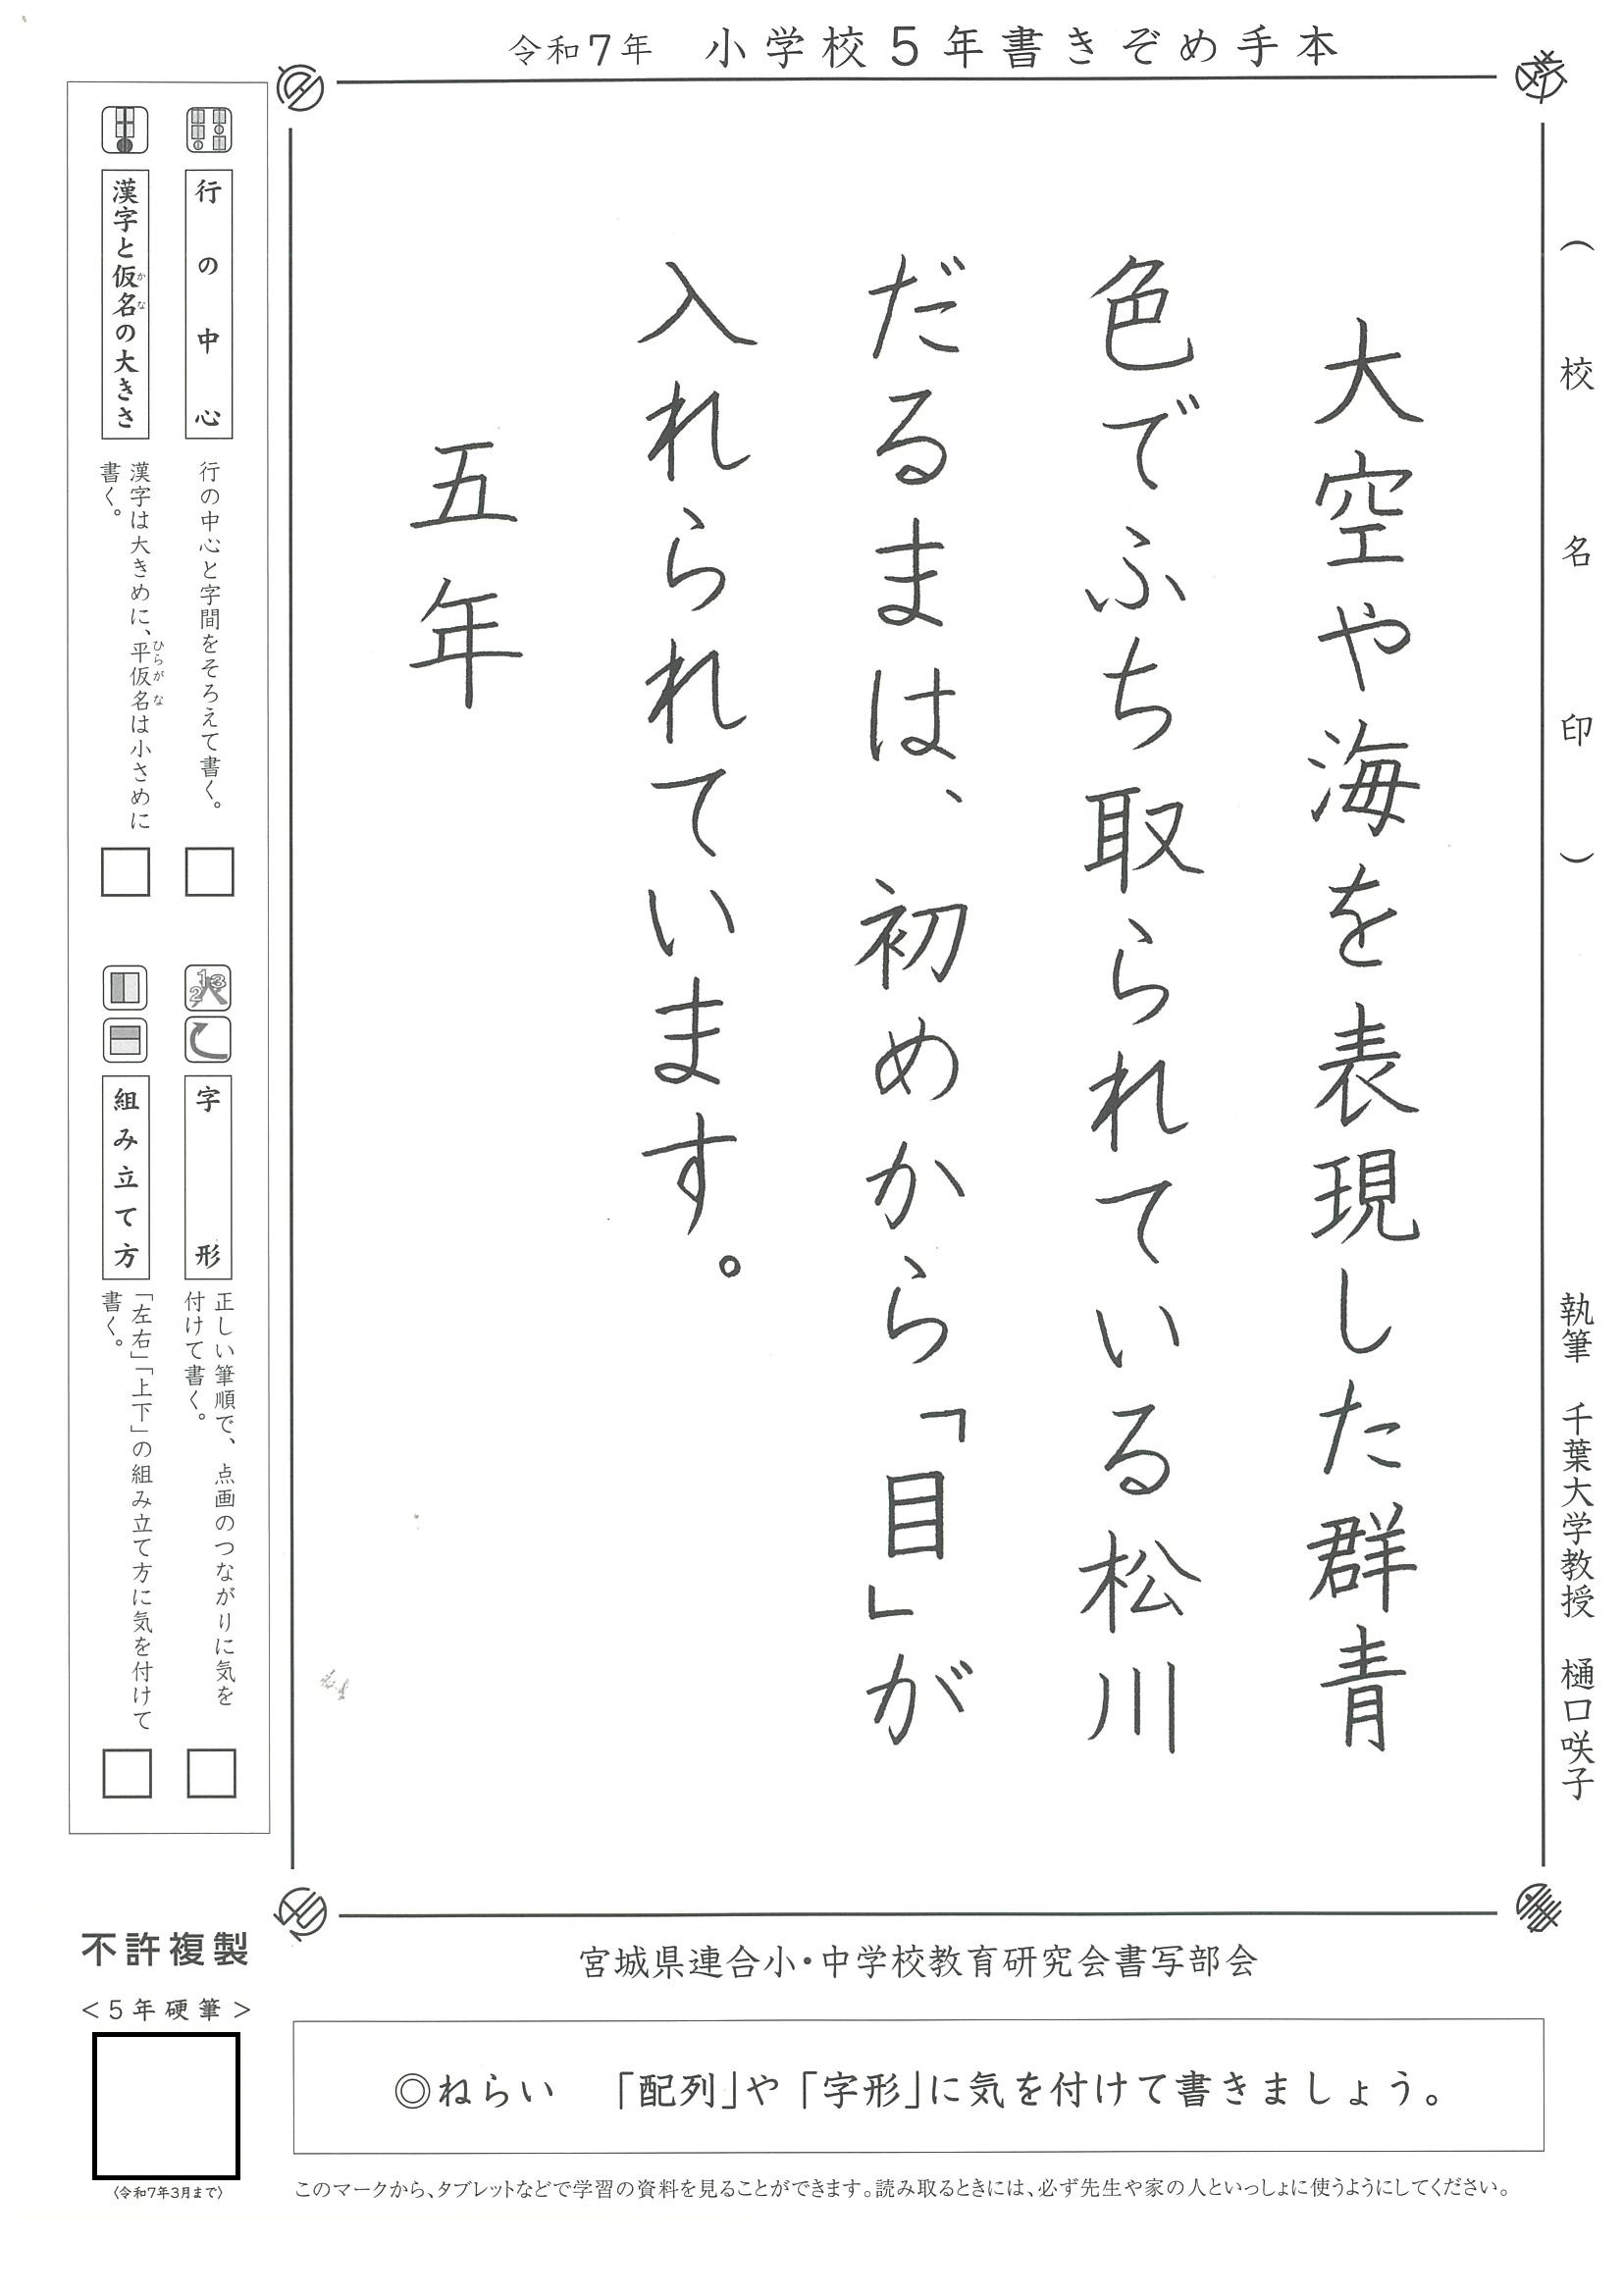 令和7年　小学校5年書きぞめ手本
（校名印）
執筆　千葉大学教授　樋口咲子
大空や海を表現した群青
色でふち取られている松川
だるまは、初めから「目」が
入れられています。
五年
行の中心
行の中心と字間をそろえて書く。
漢字と仮名の大きさ
かな
漢字は大きめに、平仮名は小さめに
ひらがな
書く。
字形
正しい筆順で、点画のつながりに気を
付けて書く。
組み立て方
「左右」「上下」の組み立て方に気を付けて
書く。
宮城県連合小・中学校教育研究会書写部会
不許複製
＜5年硬筆＞
〈令和7年3月まで〉
◎ねらい　「配列」や「字形」に気を付けて書きましょう。
このマークから、タブレットなどで学習の資料を見ることができます。読み取るときには、必ず先生や家の人といっしょに使うようにしてください。